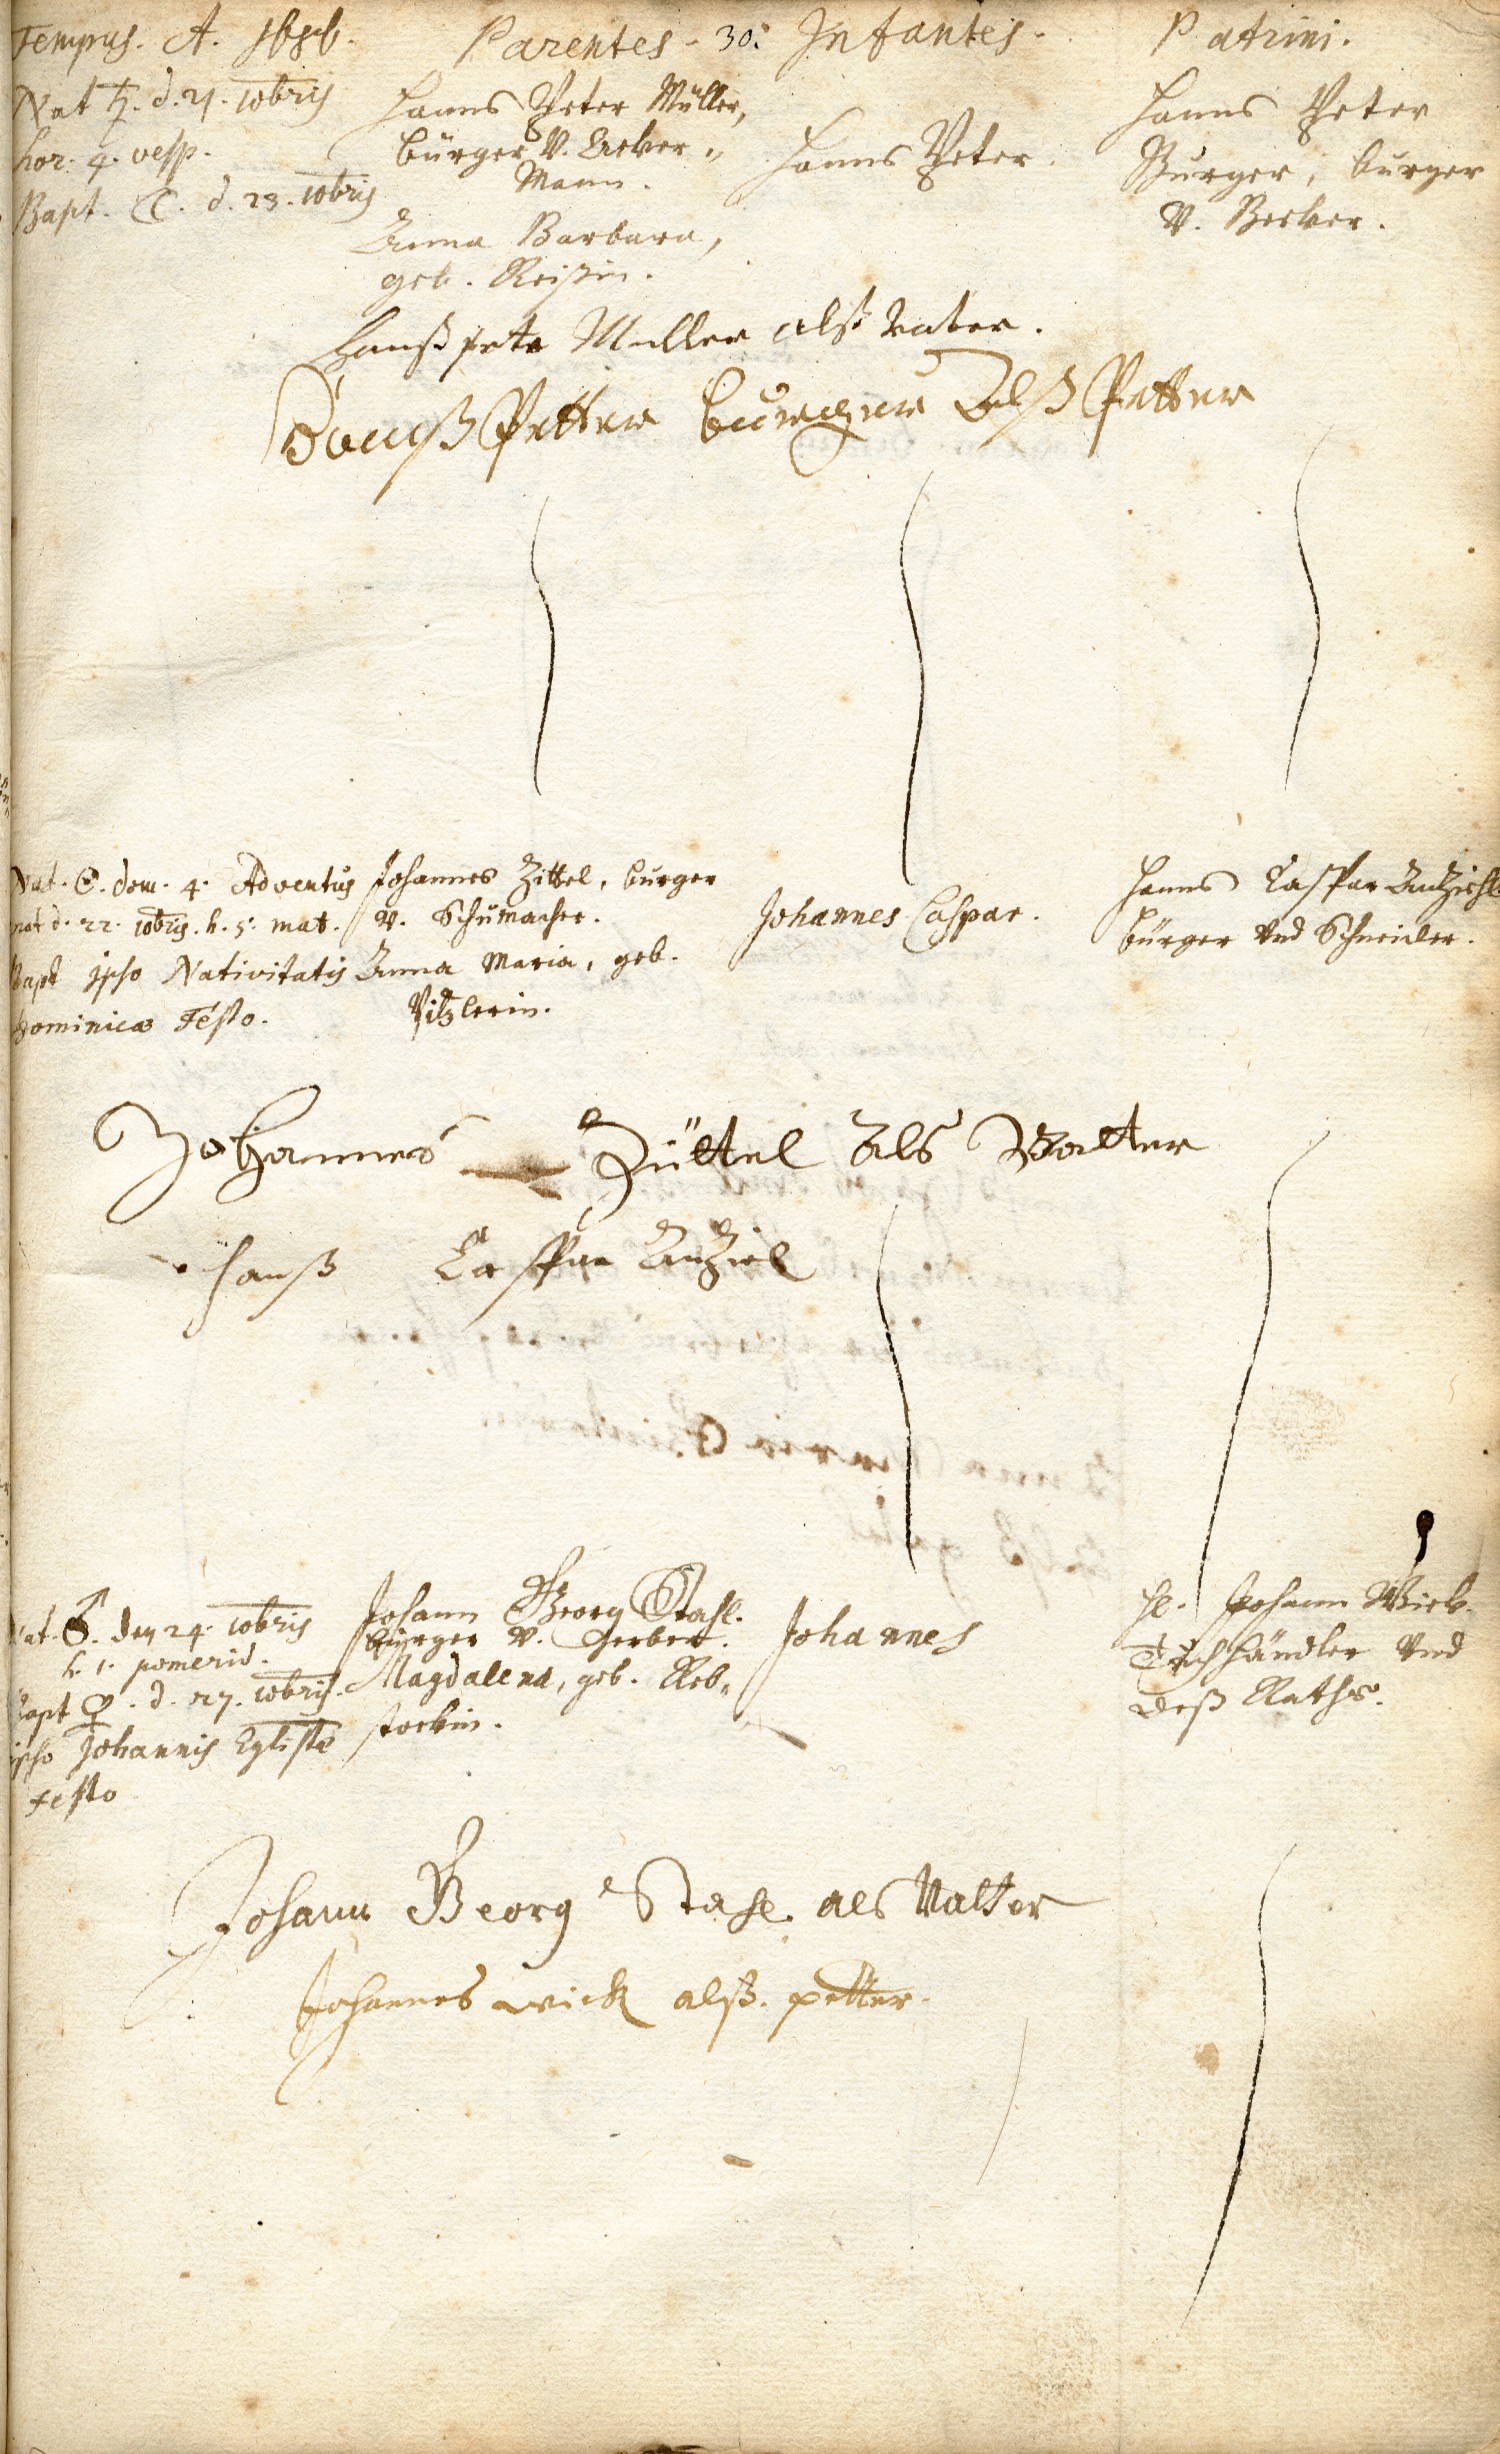 Tempus. A. 1686. Parentes. 30. Infantes. Patrini.
Nat ♄. d. 21. 10bris
hor. 4. vesp.
Bapt. ☾. d. 23. 10bris
Hanns Peter Müller,
burger V. Acker„
Mann.
Anna Barbara,
geb. Reißin.
Hanns Peter.
Hanns Peter
Burger, burger
V. Becker.
Hanß petr Muller alß Vater.
Hanß Petter burger Alß Petter
Nat. ☉. dom. 4. Adventus
nat d. 22. 10bris. h. 5. mat.
Bapt ipso Nativitatis
Dominicae Festo.
Johannes Zittel, burger
V. Schumacher.
Anna Maria, geb.
Vitzlerin.
Johannes Caspar.
Hanns Caspar Anziehl
burger Vnd Schneider.
Johannes Züttel Als Vatter
Hanß Caspar Anziel
Nat. ♂. den 24. 10bris
h. 1. pomerid.
Bapt ♀. d. 27. 10bris.
ipso Johannis Eglistae
Festo
Johann Georg Stahl.
burger V. Gerber.
Magdalena, geb. Reb„
stockin.
Johannes
H. Johann Wick
Tuchhändler Vnd
deß Raths.
Johann Georg Stahl als Vatter
Johannes wick alß. petter.